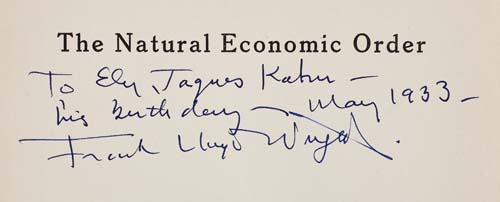 The Natural Economic Order
To Ely Jaques Kahn –
his birthday – May 1933 –
Frank Lloyd Wright.